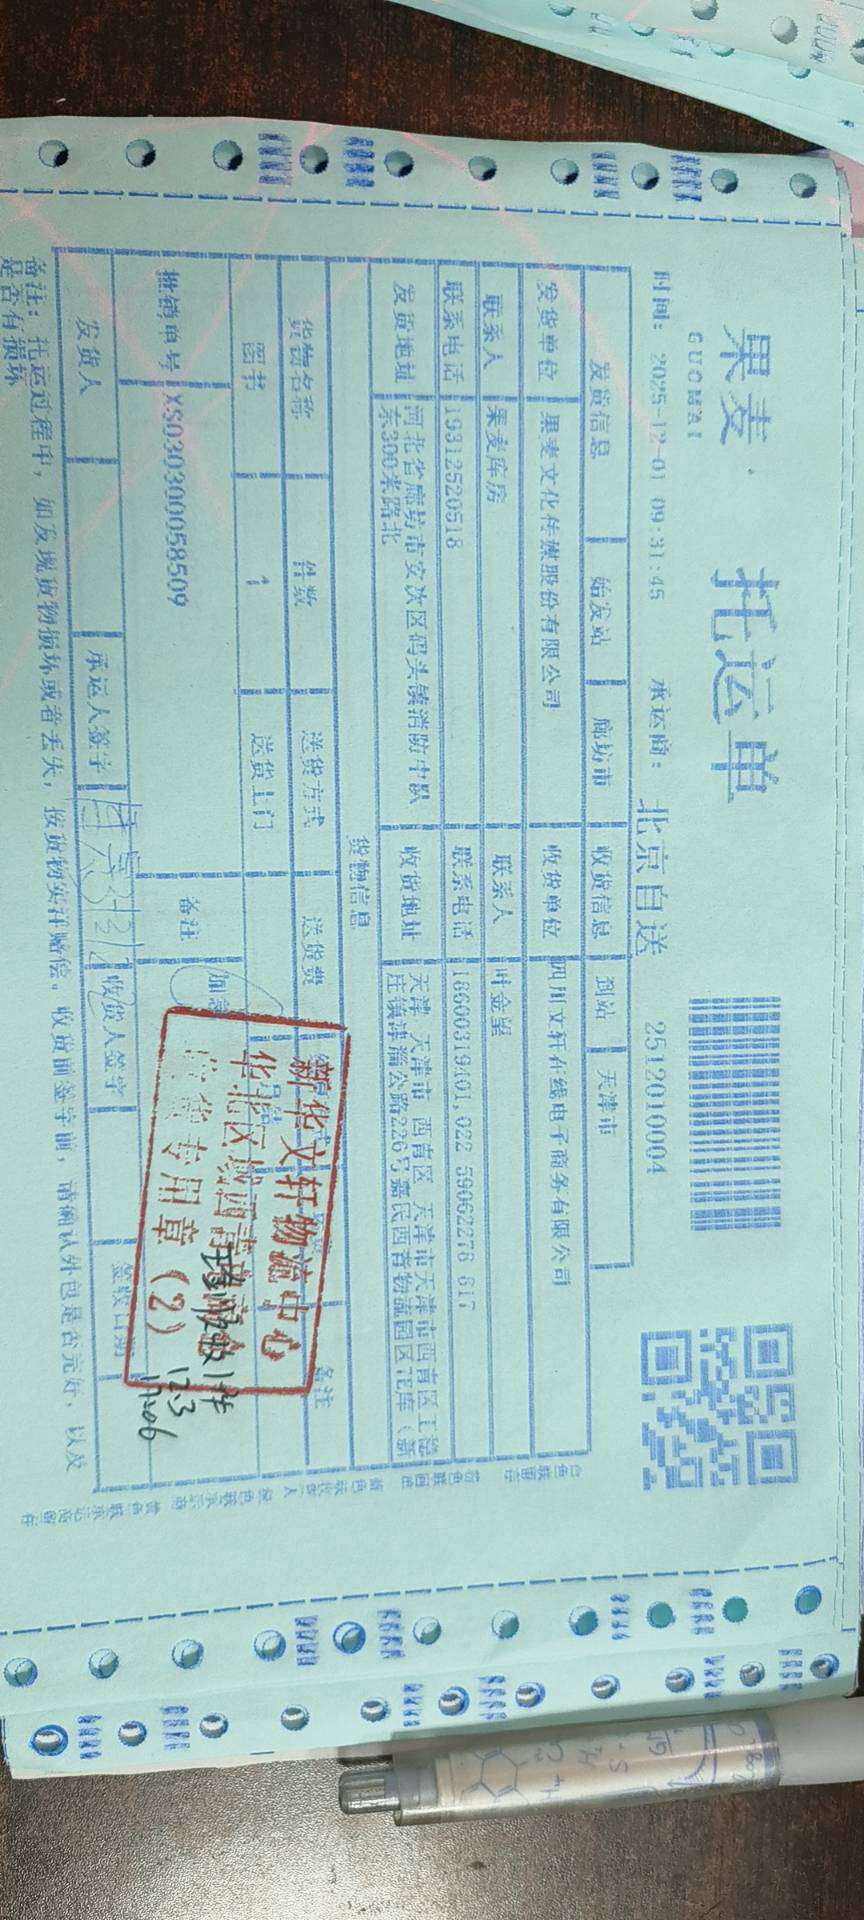 果麦 托运单
GUOMAI
时间: 2025-12-01 09:31:45 承运商: 北京自送 2512010004
发货信息 始发站 廊坊市 收货信息 到站 天津市
发货单位 果麦文化传媒股份有限公司 收货单位 四川文轩在线电子商务有限公司
联系人 果麦库房 联系人 叶金玺
联系电话 19312520518 联系电话 18600319401,022 59062276 617
发货地址 河北省廊坊市安次区码头镇消防中队东300米路北 收货地址 天津 天津市 西青区 天津市天津市西青区王稳庄镇津淄公路226号嘉民西青物流园区 库(新
货物信息
货物名称 件数 送货方式 送货费 备注
图书 1 送货上门
推销单号 XS030300058509 备注 加急
发货人 承运人签字 收货人签字 签收日期
备注: 托运过程中，如发现货物损坏或者丢失，按货物实洋赔偿。收货前签字前，请确认外包是否完好，以及
是否有损坏
新华文轩物流中心
华北区域西青
收货专用章(2)
实收1件
12.3
17:06
白色联留存